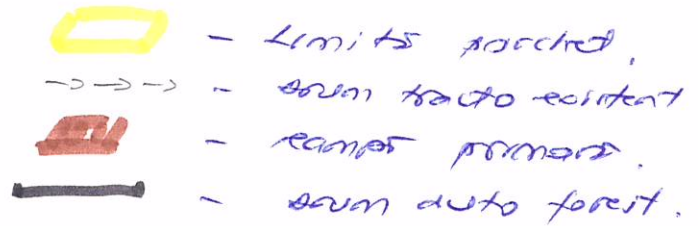 - Limită parchet.
- drum tractor existent
- rampă primară.
- drum auto forest.